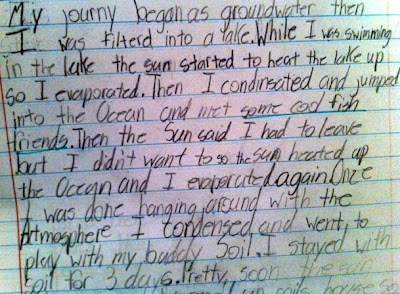 My journy began as groundwater then
I was filterd into a lake. While I was swimming
in the lake the sun started to heat the lake up
so I evaporated. Then I condinsated and jumped
into the Ocean and met some cod fish
friends. Then the Sun said I had to leave
but I didn't want to so the sun heated up
the Ocean and I evaporated again. Once
I was done hanging around with the
Atmosphere I condensed and went to
play with my buddy Soil. I stayed with
soil for 3 days. Pretty soon the sun
soils house so